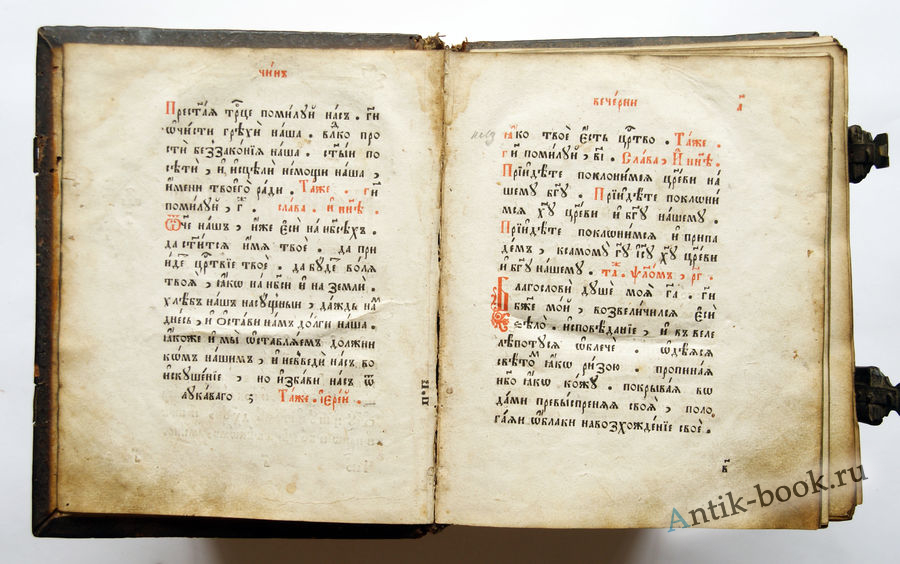 чи́нъ
Прест҃а́я трⷪ҇це поми́луй на́съ . гⷭ҇и
ѡ҆чи́сти грѣхѝ на́ша . влⷣко про
стѝ беззако́нїя на́ша . ст҃ы́и по
сѣтѝ , и҆ и҆сцѣлѝ не́мощи на́ша ,
и҆́мени твоего̀ ра́ди . Та́же . гⷭ҇и
поми́луй , г҃ . сла́ва . и҆ ны́нѣ .
Ѿче на́шъ , и҆́же є҆сѝ на нб҃сѣ́хъ .
да ст҃и́тся и҆́мя твоѐ . да прі
и҆́детъ црⷭ҇твїе твоѐ . да бу́детъ во́ля
твоя̀ , ꙗ҆́кѡ на нб҃сѝ и҆ на землѝ .
хлѣ́бъ на́шъ насу́щныи , да́ждь на́мъ
дне́сь , и҆ ѡ҆ста́ви на́мъ до́лги на́ша .
ꙗ҆́коже и҆ мы̀ ѡ҆ставля́емъ должни
ко́мъ на́шимъ , и҆ невведѝ на́съ во
и҆скуше́нїе , но и҆зба́ви на́съ ѿ
лука́ваго Та́же . і҆ере́й .
вече́рни
ꙗ҆́ко твоѐ є҆́сть црⷭ҇тво . Та́же .
гⷭ҇и поми́луй , в҃і . Сла́ва , И҆ ны́нѣ .
Прїиди́те поклони́мся цр҃еви на́
шему бг҃у . Прїиди́те поклони́
мся хрⷭ҇ту̀ цр҃еви и҆ бг҃у на́шему .
Прїиди́те поклони́мся и҆ припа
де́мъ , ксамому̀ гⷭ҇у і҆с҃у хрⷭ҇ту̀ цр҃еви
и҆ бг҃у на́шему . та́ж . ѱало́мъ , рг҃ .
Благословѝ душѐ моя̀ гⷭ҇а . гⷭ҇и
бж҃е мо́й , возвели́чился є҆сѝ
ѕѣло̀ . и҆сповѣ́данїе , и҆ в веле
лѣ́потуся ѡ҆бле́че . ѡ҆дѣя́ся
свѣ́томъ ꙗ҆́кѡ ри́зою . пропина́я
нб҃о ꙗ҆́кѡ ко́жу . покрыва́я во
да́ми превы́спреняя своя̀ , пола
га́яи ѡ҆́блаки навозхожде́нїе своѐ .
Antik-book.ru